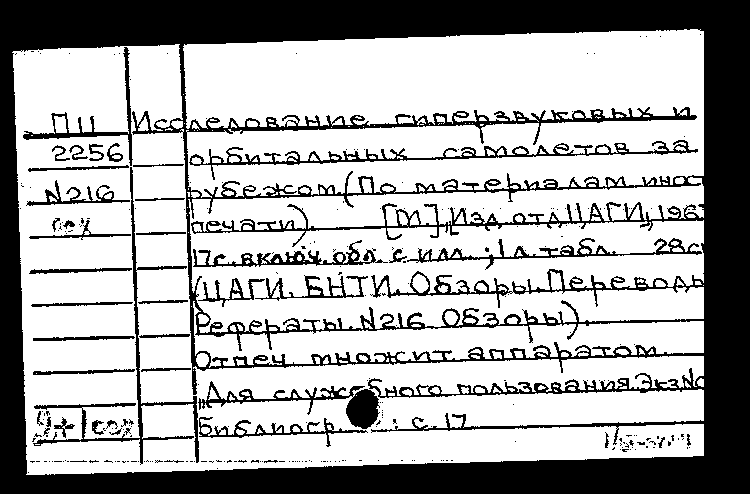 П11 Исследование гиперзвуковых и
2256 орбитальных самолетов за
N216 рубежом (По материалам иност
сох печати). [М], „Изд. отд. ЦАГИ„, 196
17с. включ. обл. с илл.; 1л. табл. 28с
(ЦАГИ. БНТИ. Обзоры. Переводы
Рефераты. N216. Обзоры).
Отпеч множит. аппаратом.
„Для служебного пользования. Экз.№
9+1 сох Библиогр. : с. 17